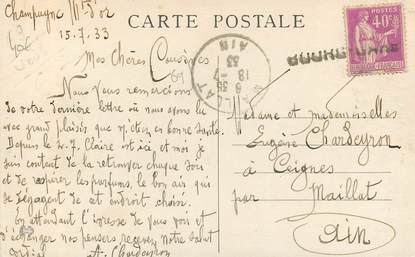 Champagne Mt d'or
CARTE POSTALE
15.7.33
Mes Chères Cousines
Nous vous remercions
de votre dernière lettre où nous avons lu
avec grand plaisir que m'étiez en bonne santé.
Depuis le Claire est ici et moi je
suis content de la retrouver chaque soir
et de respirer les parfums, le bon air qui
se dégagent de cet endroit choisi.
En attendant l'ivresse de vous voir et
d'échanger nos pensers recevez notre salut
A. Chardeyron
69
40c
MAILLAT
6 35
18 -7
33
AIN
POSTES
40c
RÉPUBLIQUE FRANÇAISE
Madame et mademoiselles
Eugène Chardeyron
à Ceignes
par Maillat
Ain